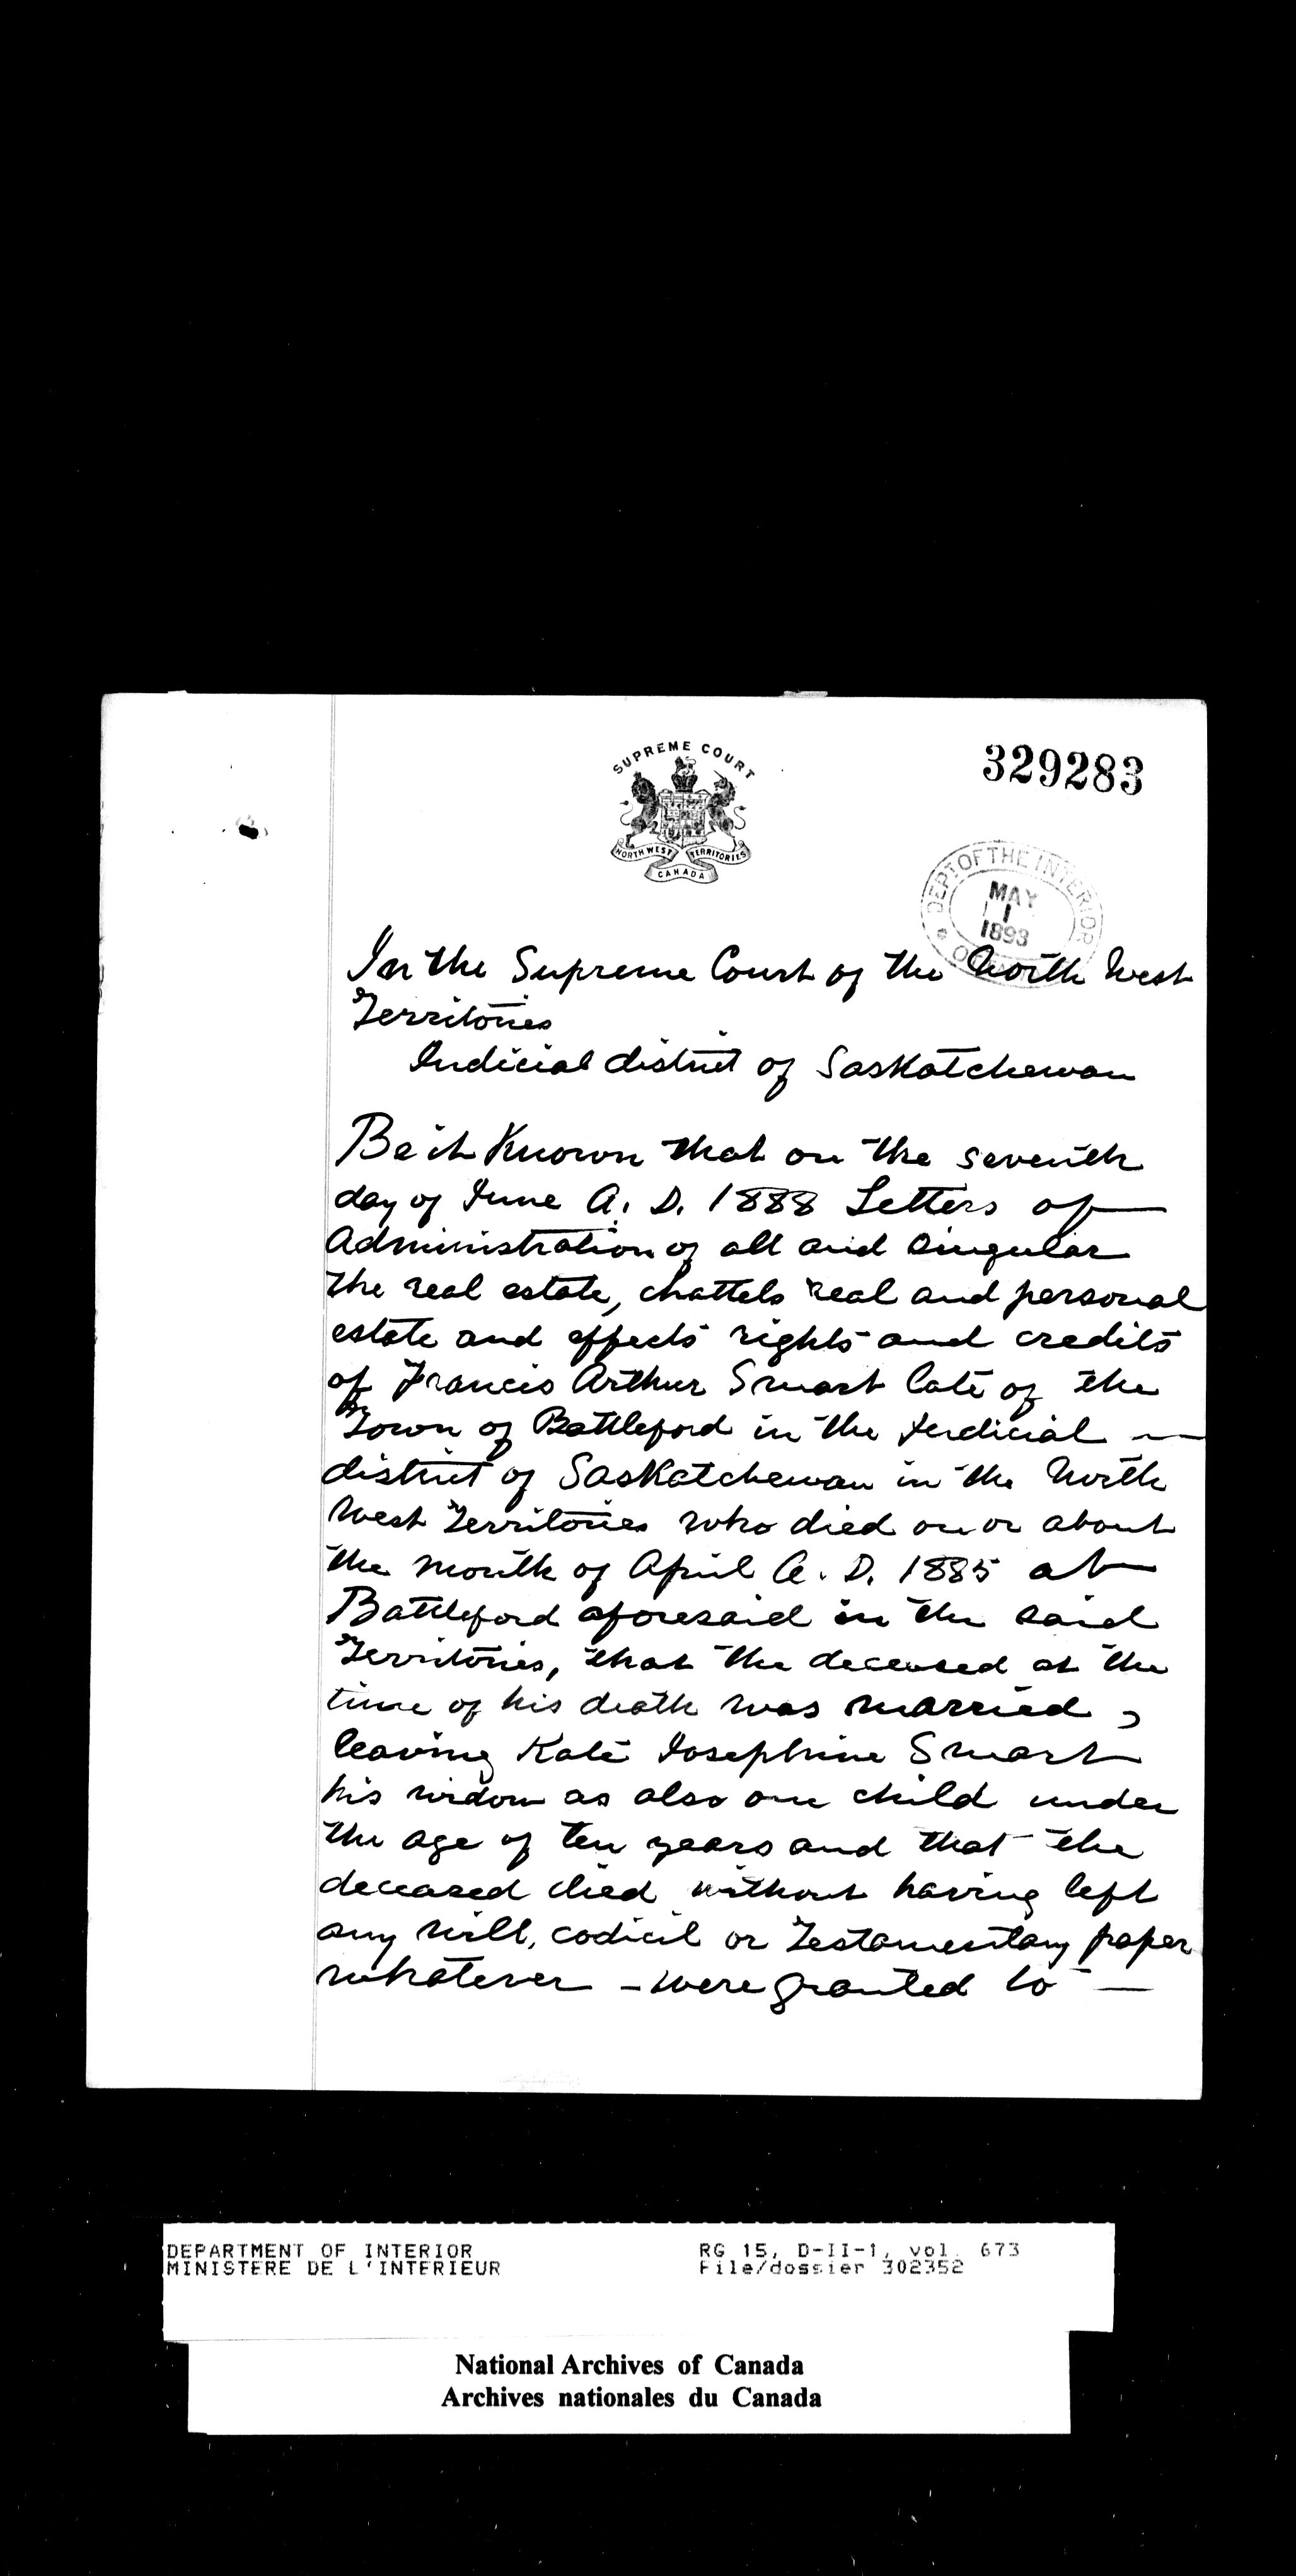 SUPREME COURT
NORTH WEST TERRITORIES
CANADA
329283
DEPT OF THE INTERIOR
MAY
1
1893
In the Supreme Court of the North West
Territories
Judicial district of Saskatchewan
Be it Known that on the seventh
day of June A. D. 1888 Letters of
Administration of all and singular
the real estate, chattels real and personal
estate and effects rights and credits
of Francis Arthur Smart late of the
Town of Battleford in the Judicial
district of Saskatchewan in the North
West Territories who died on or about
the month of April A. D. 1885 at
Battleford aforesaid in the said
Territories, that the deceased at the
time of his death was married,
leaving Kate Josephine Smart
his widow as also one child under
the age of ten years and that the
deceased died without having left
any will, codicil or Testamentary paper
whatever - were granted to —
DEPARTMENT OF INTERIOR
MINISTERE DE L'INTERIEUR
RG 15, D-II-1, vol. 673
File/dossier 302352
National Archives of Canada
Archives nationales du Canada